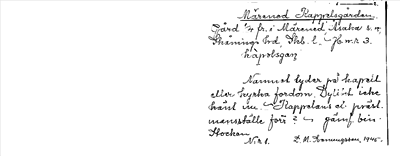 Mårenod Kappelsgården.
Gård ¼ fr. i Mårenod Maka s:n
Skånings hd. Skb. l. - Jb nr 3.
kapelsgan
Namnet tyder på kapell
eller kyrka fordom. Dylikt icke
känt nu. Kappelans el. präst
mansställe förr? -
Stocken
Nr 1. 1945.